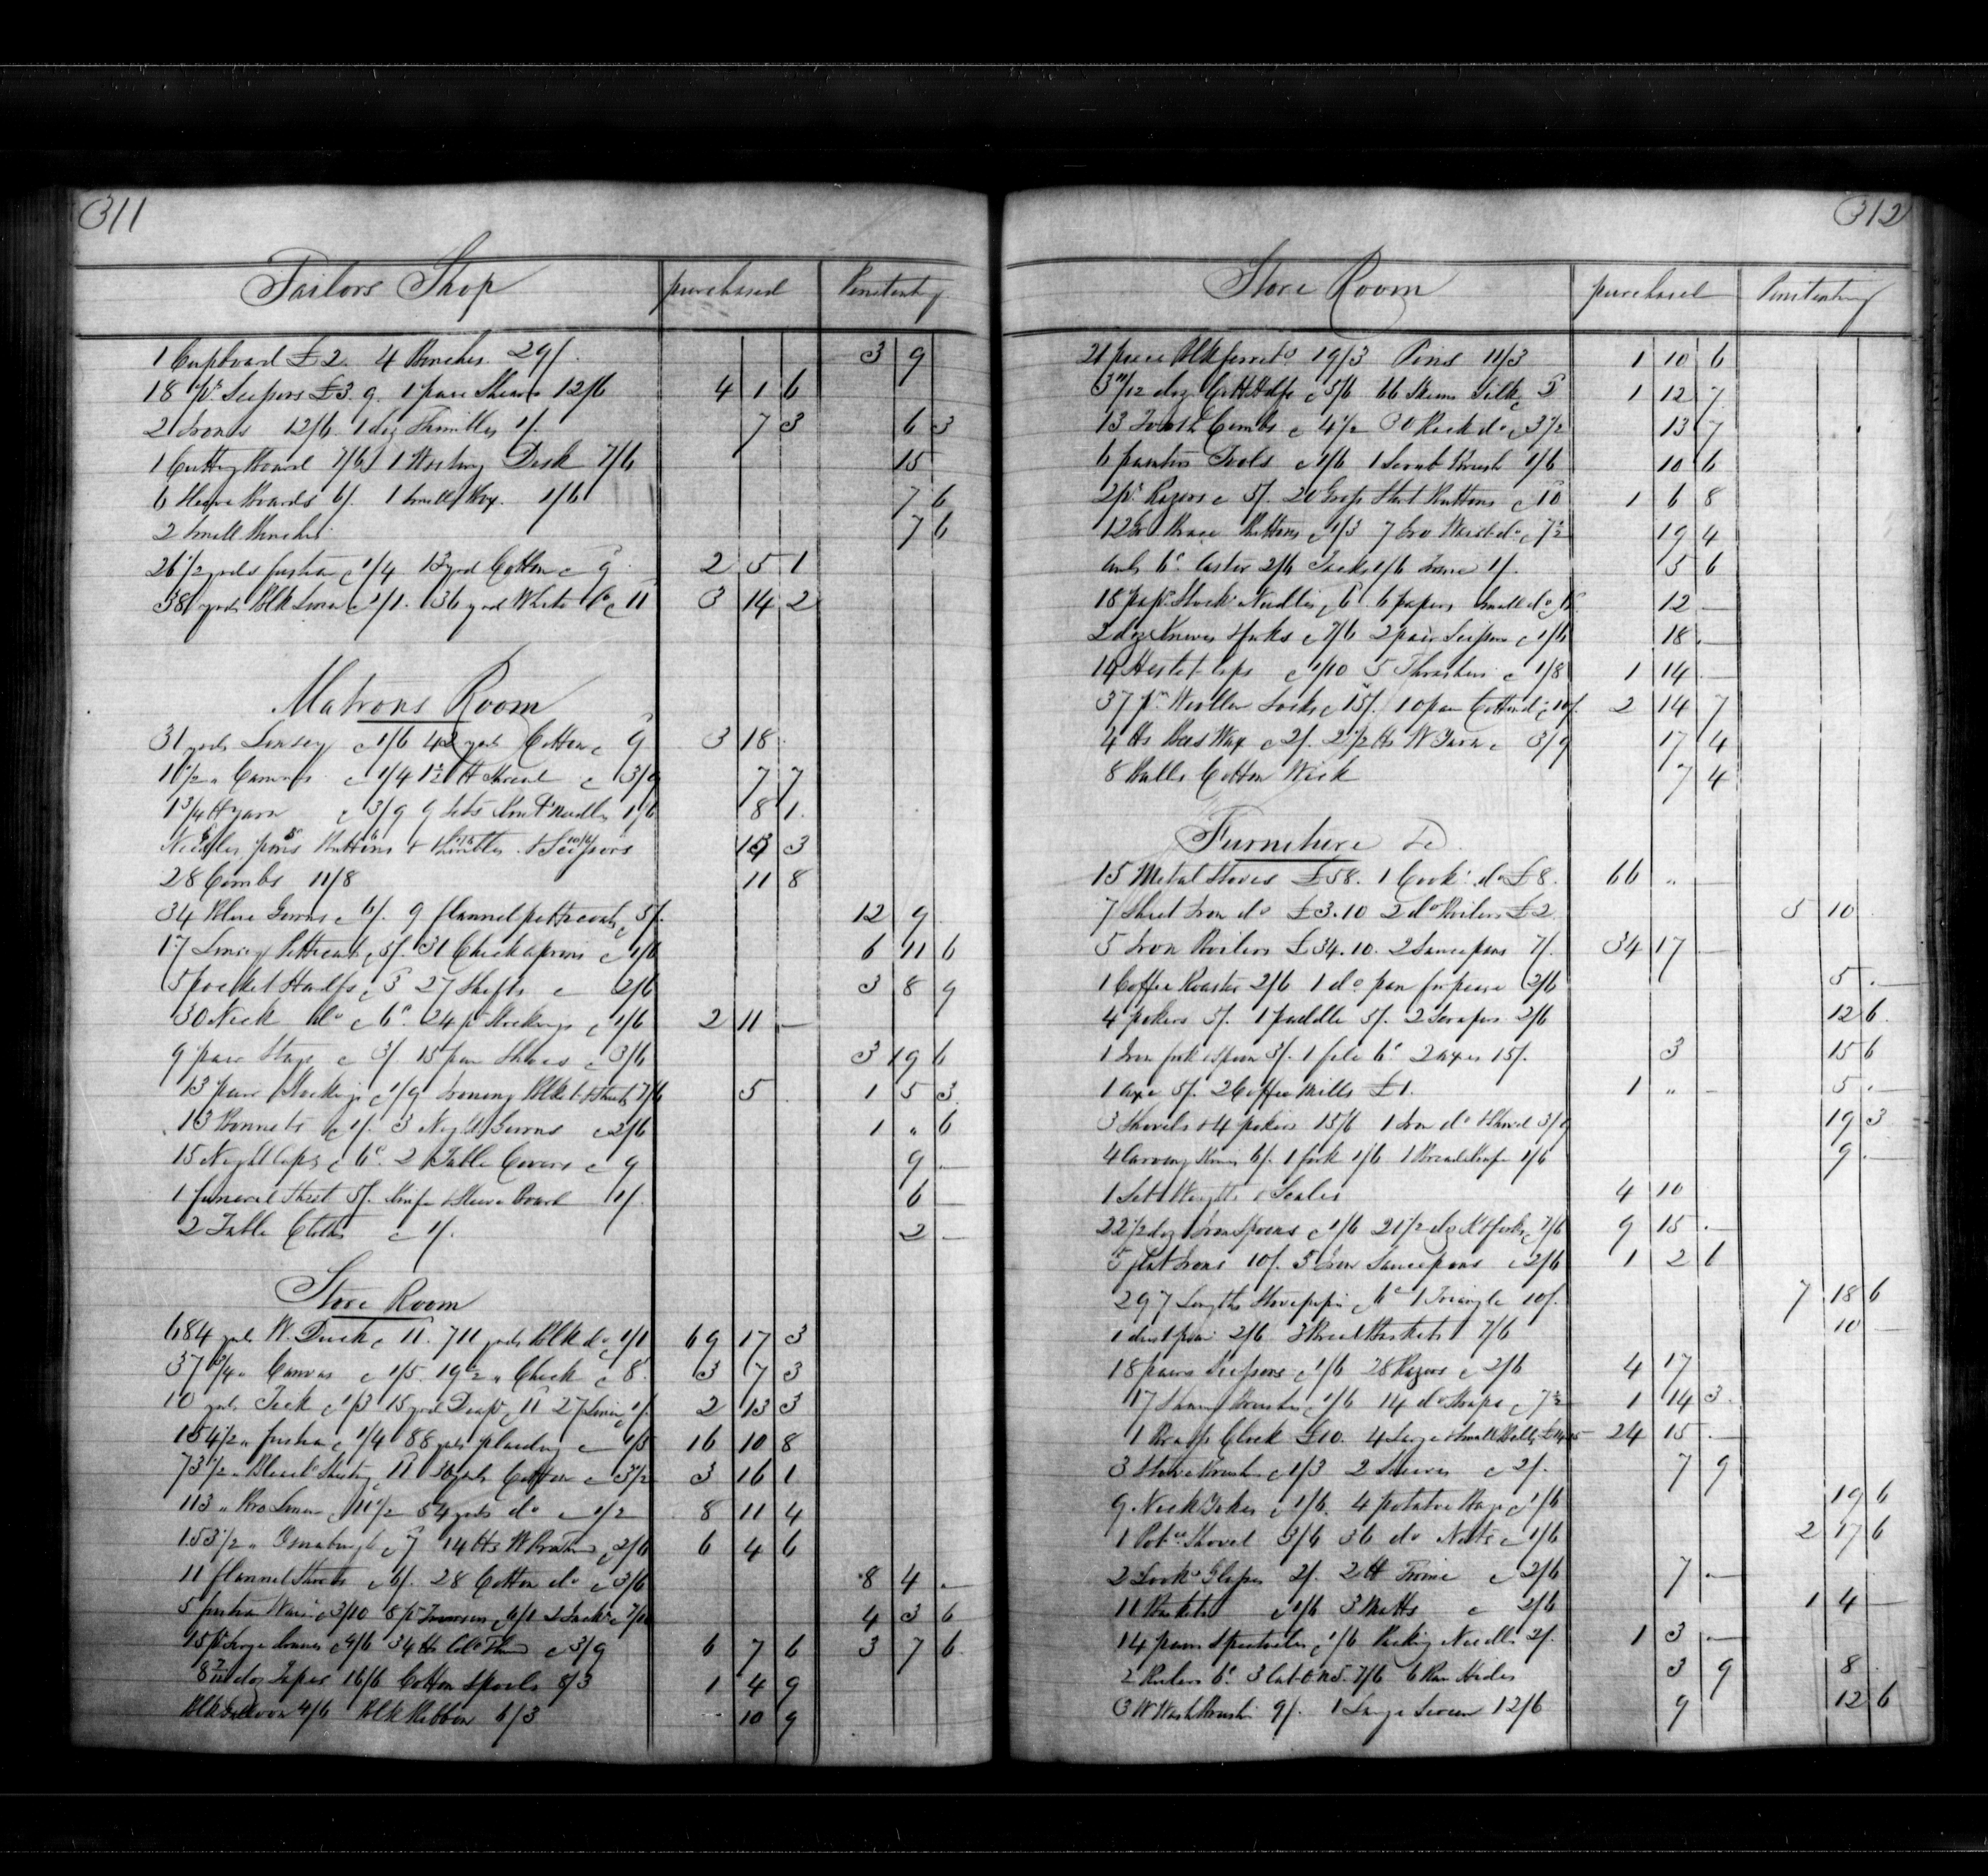 311
Tailors Shop purchased Penitenty
1 Cupboard £2. 4 Benches 29/. 3 9
18 pr. Scissors £3.9. 1 pair Shears 12/6 4 1 6
2 Irons 12/6. 1 doz Thimbles 1/. 7 3 6 3
1 Cutting Board 7/6 1 Writing Desk 7/6 15
6 Sleeve Boards 6/. 1 Small Box. 1/6 7 6
2 Small Benches 7 6
26 1/2 yards fustian @ 1/4 13 yrd Cotton @ 9 2 5 1
38 yards Blk Linen @ 1/1. 36 yrd White Do @ 11 3 14 2
Matrons Room
31 yards Linsey @ 1/6 42 yds Cotton @ 9 3 18
1 1/2 " Canvas @ 1/4 1 1/2 lb Thread @ 3/9 7 7
1 3/4 lb yarn @ 3/9 9 Sets Knitg Needles 1/6 8 1
Needles pins Buttons & thimbles & Scissors 13 3
28 Combs 11/8 11 8
34 Blue Gowns @ 6/. 9 flannel petticoats 5/. 12 9
17 Linsey Petticoats @ 5/. 31 Check aprons @ 1/6 6 11 6
15 pocket Handfs @ 3 27 Shifts @ 2/6 3 8 9
30 Neck do @ 6d. 24 pr Stockings @ 1/6 2 11 —
9 pair Stays @ 3/. 15 pair Shoes @ 3/6 3 19 6
13 pair Stockings @ 1/9 Ironing Blkt & Sheets 7/6 5 1 5 3
13 Bonnets @ 1/. 3 Night Gowns @ 2/6 1 " 6
15 Night Caps @ 6d. 2 Table Covers @ 9 9
1 funeral Sheet 5/. Knife & Sleeve Board 1/. 6 —
2 Table Cloths @ 1/. 2 —
Store Room
684 yds W. Duck @ 11. 711 yards Blk do @ 1/1 69 17 3
37 3/4 " Canvas @ 1/5. 19 1/2 " Check @ 8. 3 7 3
10 yds Tick @ 1/3 15 yrd Diapr @ 11 27 Linen @ 1/. 2 13 3
154 1/2 " fustian @ 1/4 88 yds plaiding @ 1/5 16 10 8
73 1/2 " Sheeting 11 30 yds Cotton @ 3 1/2 3 16 1
113 " Bro Linen @ 11 1/2 54 yards do @ 1/2 8 11 4
153 1/2 " Osnaburgh @ 7 14 lbs W. @ 2/6 6 4 6
11 flannel Shirts @ 6/. 28 Cotton do @ 3/6 8 4 —
5 fustian @ 3/10 8 pr Trowsers @ 6/1 7/6 4 3 6
15 pr Large @ 4/6 34 lbs Cold Thd @ 3/9 6 7 6 3 7 6
doz Tapes 16/6 Cotton Spools 8/3 1 4 9
Blk Galloon 4/6 Blk Ribbon 6/3 10 9
312
Store Room purchased Penitenty
21 piece Blk ferret @ 19/3 Pins 11/3 1 10 6
doz Hdkfs @ 5/6 66 Skeins Silk @ 3 1 12 7
13 Tooth Combs @ 4 1/2 30 Rack do @ 3 1/2 13 7
6 painters Tools @ 1/6 1 Scrub Brush 1/6 10 6
2 pr. Razors @ 5/. 20 Gross Shirt Buttons @ 10 1 6 8
12 Gro Brace Buttons @ 1/3 7 Gro Waist do @ 7 1/2 19 4
6d. Castor 2/6 Tacks 1/6 1/. 5 6
18 Stockg Needles @ 6d. 6 papers Small do @ 12 —
2 doz Knives & forks @ 7/6 2 pair Scissors @ 1/6 18 —
14 caps @ 1/10 5 @ 1/8 1 14 —
37 pr. Woollen Socks @ 15/. 10 pair Cotton do @ 10/. 2 14 7
4 lbs Bees Wax @ 2/. 2 1/2 lbs W Yarn @ 3/9 17 4
8 Balls Cotton Wick 7 4
Furniture &c
15 Metal Stoves £58. 1 Cookg do £8. 66 " —
7 Sheet Iron do £3.10 2 do Boilers £2 5 10
5 Iron Boilers £34.10. 2 Saucepans 7/. 34 17 —
1 Coffee Roaster 2/6 1 do pan for pease 2/6 5 —
4 pokers 5/. 1 paddle 5/. 2 Scrapers 2/6 12 6
1 Iron fork & Spoon 3/. 1 file 6d. 2 axes 15/. 3 15 6
1 axe 5/. 2 Coffee Mills £1. 1 " — 5 —
3 Shovels & 4 pokers 15/6 1 Iron do & Shovel 3/9 19 3
4 Carving Knives 6/. 1 fork 1/6 1 Bread Knife 1/6 9
1 Set Weights & Scales 4 10
22 1/2 doz Iron Spoons @ 1/6 21 1/2 do K & forks @ 7/6 9 15 —
5 flat Irons 10/. 5 Iron Saucepans @ 2/6 1 2 6
297 Lengths Stovepipe @ 6d 1 Triangle 10/. 7 18 6
1 dust pan 2/6 3 Bread Baskets 7/6 10 —
18 pairs Scissors @ 1/6 28 Razors @ 2/6 4 17
17 Shavg Brushes @ 1/6 14 do Straps @ 7 1/2 1 14 3
1 Brass Clock £10. 4 Large & Small Bells £14.15 24 15 —
3 Stove Brushes @ 1/3 2 Sieves @ 2/. 7 9
9 Neck Yokes @ 1/6. 4 potatoe Hags @ 1/6 19 6
1 Potoe Shovel 3/6 36 do Nets @ 1/6 2 17 6
2 Lookg Glasses 2/. 2 lb Twine @ 2/6 7 —
11 Baskets @ 1/6 3 Matts @ 2/6 1 4 —
14 pairs Spectacles @ 1/6 Packing Needles 2/. 1 3 —
2 Rulers 6d. 3 Cat O n5. 7/6 6 Raw Hides 3 9 8
3 W Wash Brushes 9/. 1 Large Screen 12/6 9 12 6